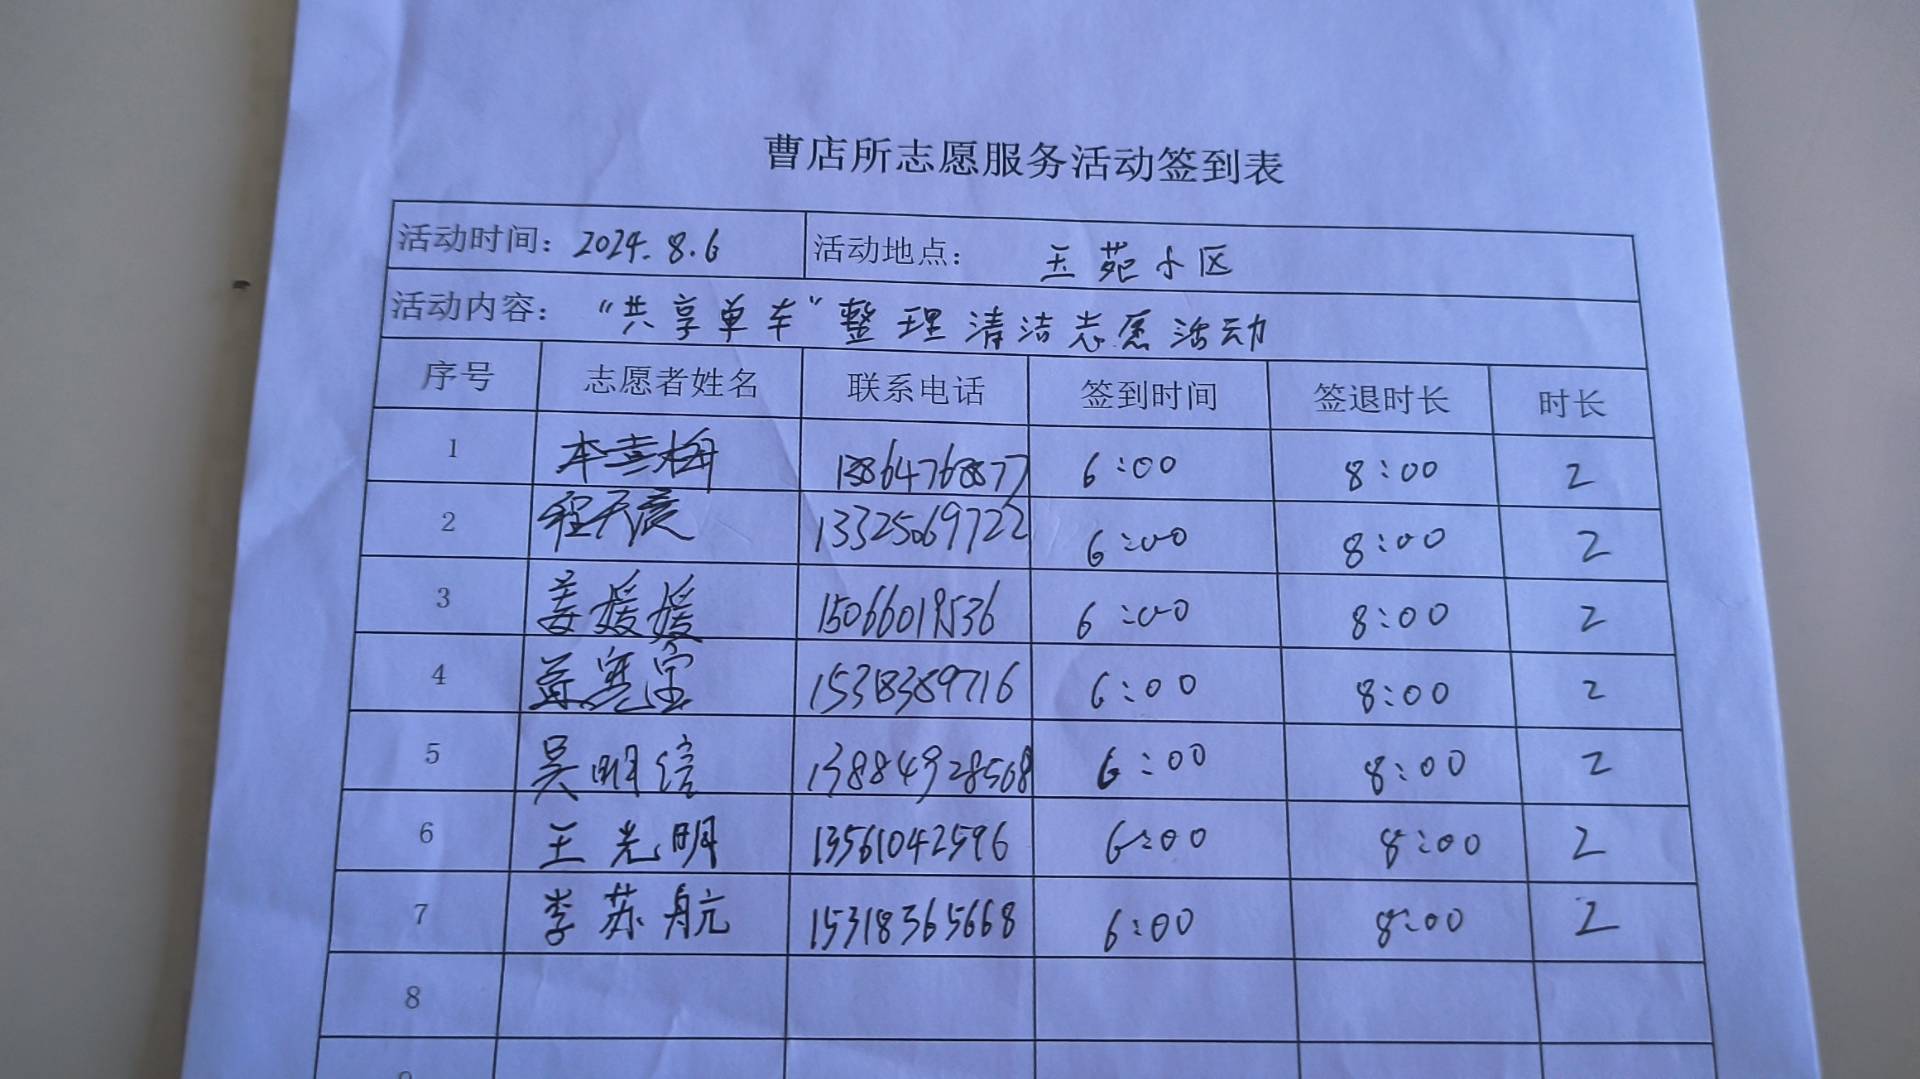 曹店所志愿服务活动签到表
活动时间：2024.8.6 活动地点： 玉苑小区
活动内容：“共享单车”整理清洁志愿活动
序号 志愿者姓名 联系电话 签到时间 签退时长 时长
1 13864768877 6:00 8:00 2
2 程天彦 13325069722 6:00 8:00 2
3 姜媛媛 15066019536 6:00 8:00 2
4 15318389716 6:00 8:00 2
5 吴明信 13884928568 6:00 8:00 2
6 王光明 13561042596 6:00 8:00 2
7 李苏航 15318365668 6:00 8:00 2
8